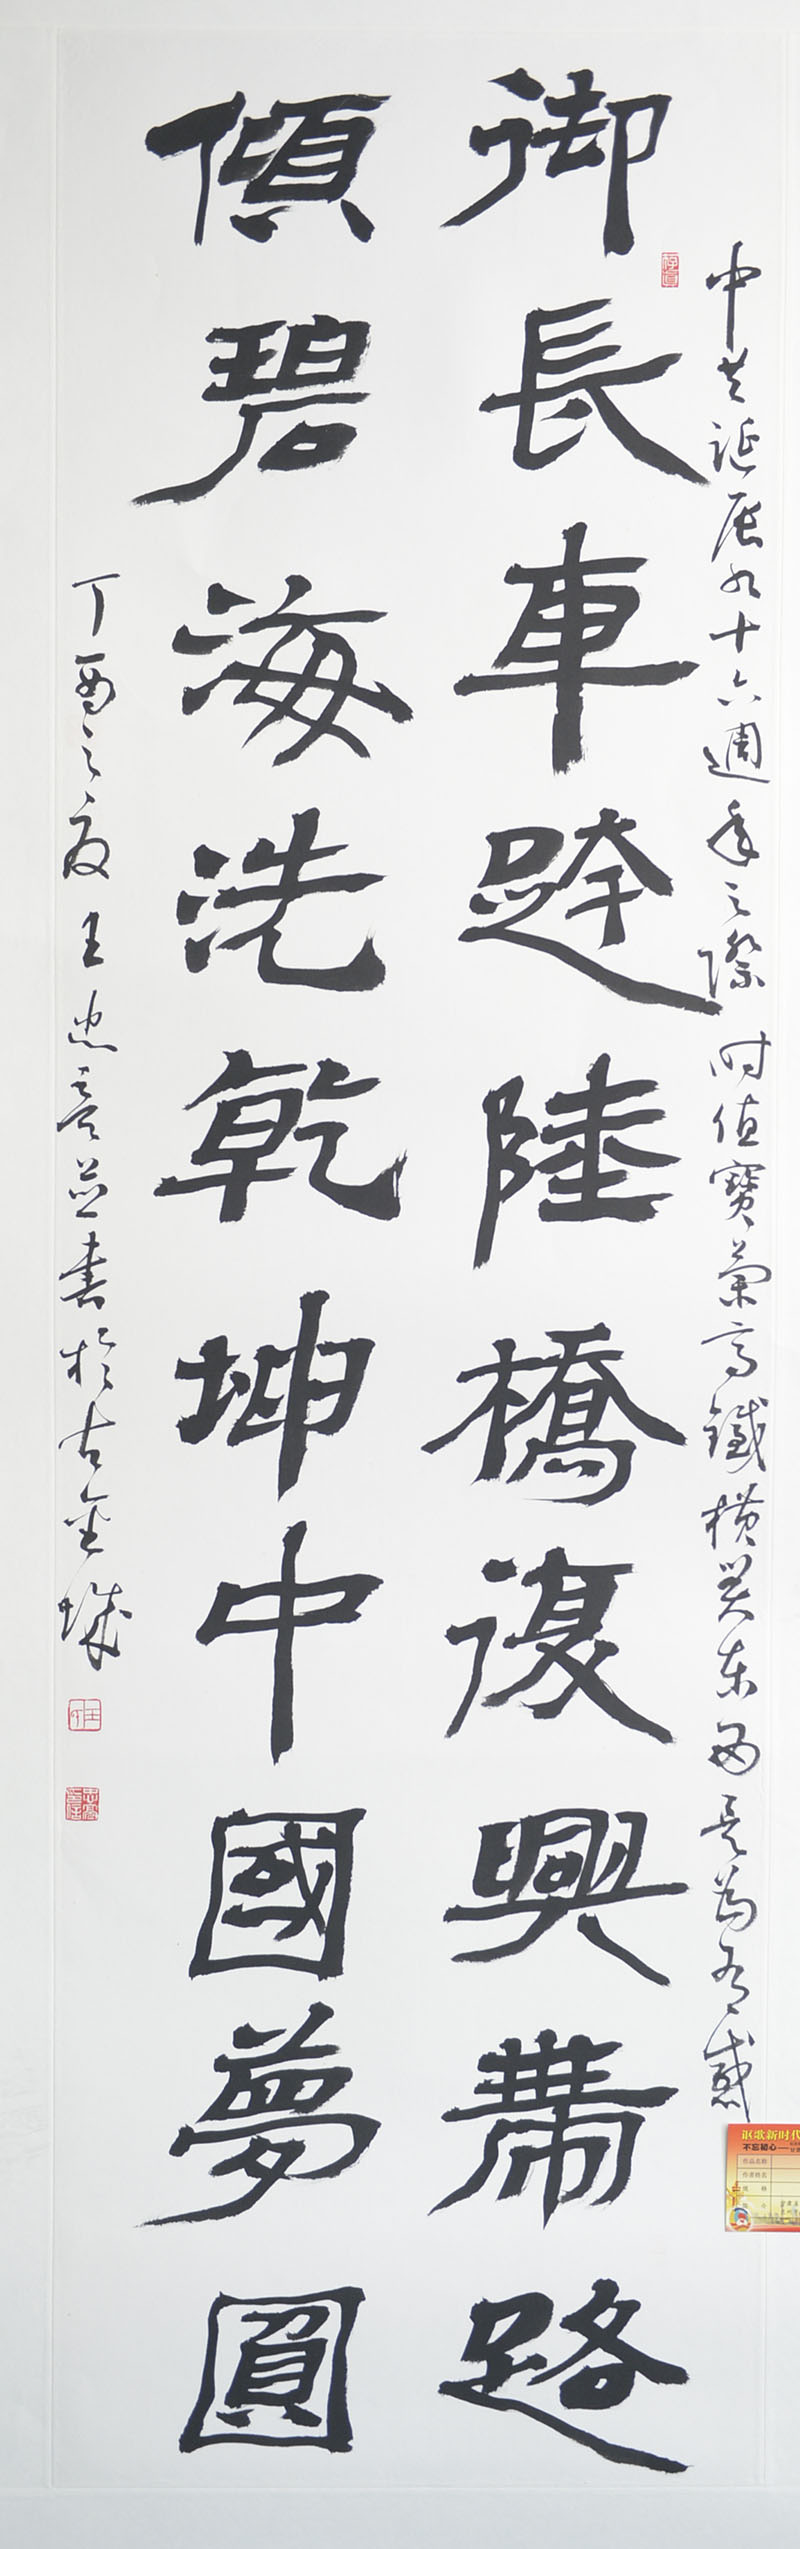 中共诞辰九十六週年之際時值寶蘭高鐵橫貫东西是為有感
御長車跨陸橋復興帶路
傾碧海洗乾坤中國夢圓
丁酉之夏王忠云並書於古金城
讴歌新时代
不忘初心
作品名称
作者姓名